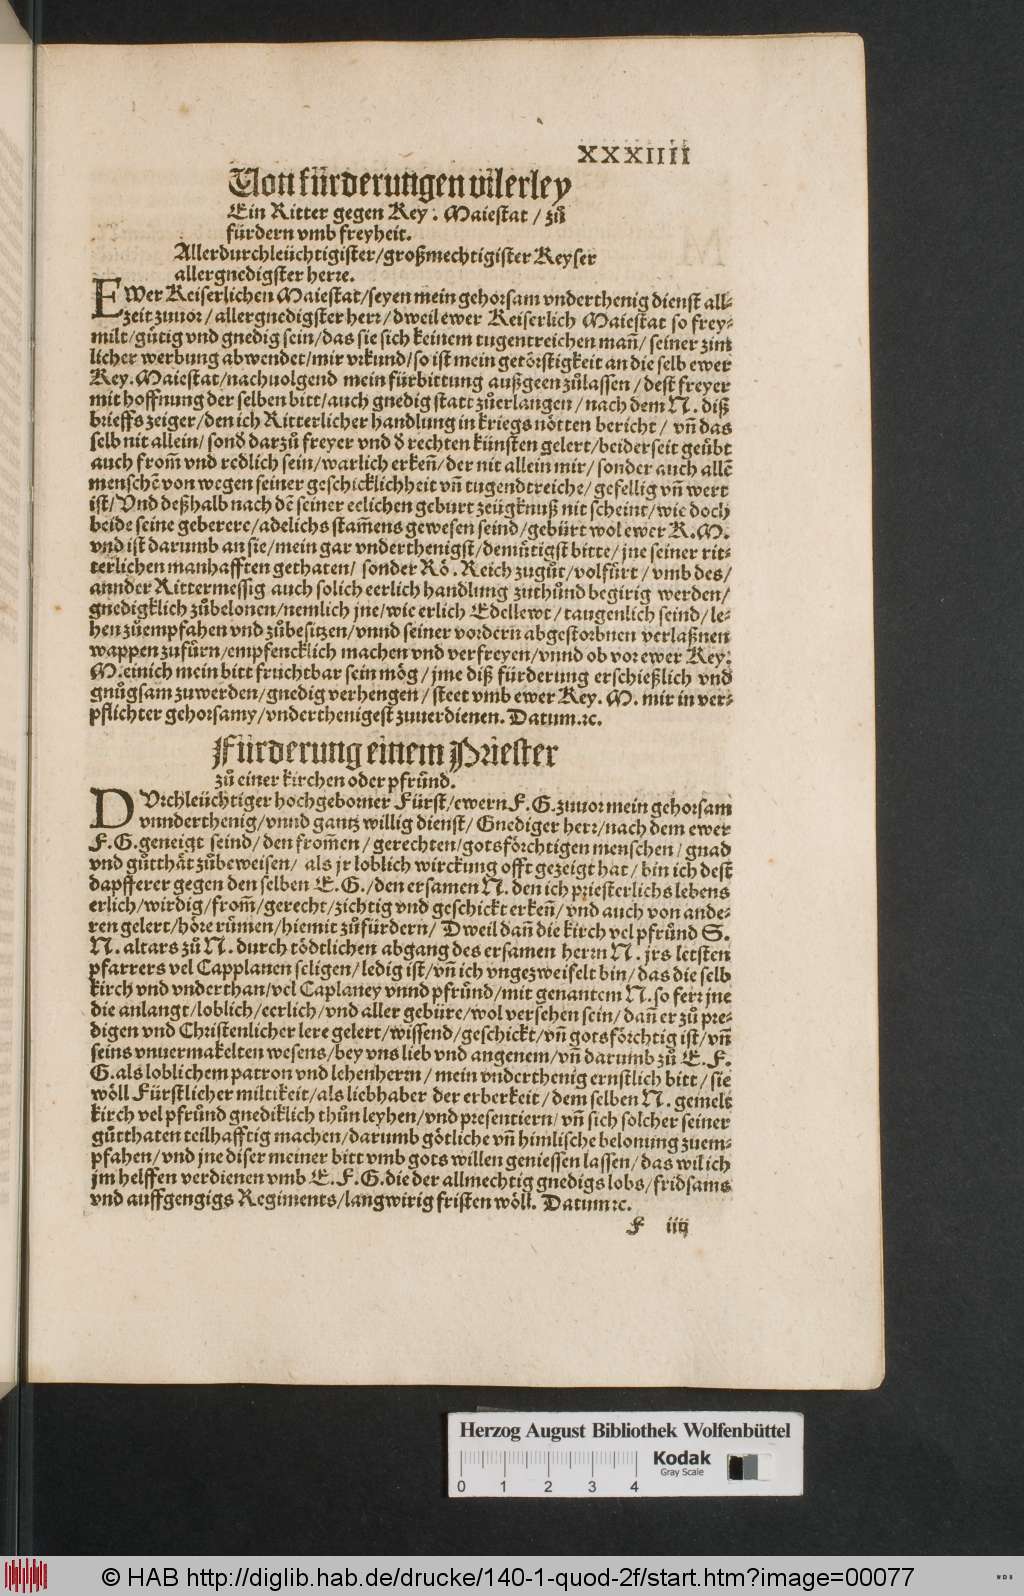 XXXIIII
Von fürderungen vilerley
Ein Ritter gegen Key. Maiestat / zů
fürdern vmb freyheit.
Allerdurchleüchtigister/großmechtigister Keyser
allergnedigster herre.
EWer Keiserlichen Maiestat/seyen mein gehorsam vnderthenig dienst all-
zeit zuuor/allergnedigster herr/dweil ewer Keiserlich Maiestat so frey-
milt/gütig vnd gnedig sein/das sie sich keinem tugentreichen mañ/seiner zim
licher werbung abwendet/mir vrkund/so ist mein getörstigkeit an die selb ewer
Key. Maiestat/nachuolgend mein fürbittung außgeen zůlassen/dest freyer
mit hoffnung der selben bitt/auch gnedig statt zůerlangen/nach dem N. diß
brieffs zeiger/den ich Ritterlicher handlung in kriegs nötten bericht/ vñ das
selb nit allein/sonđ darzů freyer vnd đ rechten künsten gelert/beiderseit geübt
auch from̃ vnd redlich sein/warlich erkeñ/der nit allein mir/sonder auch allẽ
menschẽ von wegen seiner geschicklichheit vñ tugendtreiche/gefellig vñ wert
ist/Vnd deßhalb nach dẽ seiner eelichen geburt zeügknuß nit scheint/wie doch
beide seine geberere/adelichs stam̃ens gewesen seind/gebürt wol ewer K. M.
vnd ist darumb an sie/mein gar vnderthenigst/demütigst bitte/jne seiner rit-
terlichen manhafften gethaten/ sonder Rö. Reich zugůt/volfürt/vmb des/
annder Rittermessig auch solich eerlich handlung zuthůnd begirig werden/
gnedigklich zůbelonen/nemlich jne/wie erlich Edellewt/taugenlich seind/le-
hen zůempfahen vnd zůbesitzen/vnnd seiner vordern abgestorbnen verlaßnen
wappen zufürn/empfencklich machen vnd verfreyen/vnnd ob vor ewer Key.
M. einich mein bitt fruchtbar sein mög/jme diß fürderung erschießlich vnd
gnůgsam zuwerden/gnedig verhengen/steet vmb ewer Key. M. mir in ver-
pflichter gehorsamy/vnderthenigest zuuerdienen. Datum.ꝛc.
Fürderung einem Priester
zů einer kirchen oder pfründ.
DVrchleüchtiger hochgeborner Fürst/ewern F. G. zuuor mein gehorsam
vnnderthenig/vnnd gantz willig dienst/Gnediger herr/nach dem ewer
F. G. geneigt seind/den from̃en/gerechten/gotsförchtigen menschen/gnad
vnd gůtthät zůbeweisen/ als jr loblich wirckung offt gezeigt hat/bin ich dest
dapfferer gegen den selben E. G./den ersamen N. den ich priesterlichs lebens
erlich/wirdig/from̃/gerecht/zichtig vnd geschickt erkeñ/vnd auch von ande-
ren gelert/höre rümen/hiemit zůfürdern/ Dweil dañ die kirch vel pfründ S.
N. altars zů N. durch tödtlichen abgang des ersamen herrn N. jrs letsten
pfarrers vel Capplanen seligen/ledig ist/vñ ich vngezweifelt bin/das die selb
kirch vnd vnderthan/vel Caplaney vnnd pfründ/mit genantem N. so ferr jne
die anlangt/loblich/eerlich/vnd aller gebüre/wol versehen sein/dañ er zů pre-
digen vnd Christenlicher lere gelert/wissend/geschickt/vñ gotsförchtig ist/vñ
seins vnuermakelten wesens/bey vns lieb vnd angenem/vñ darumb zů E. F.
G. als loblichem patron vnd lehenherrn/mein vnderthenig ernstlich bitt/sie
wöll Fürstlicher miltikeit/als liebhaber der erberkeit/dem selben N. gemelt
kirch vel pfründ gnediklich thůn leyhen/vnd presentiern/vñ sich solcher seiner
gůtthaten teilhafftig machen/darumb götliche vñ himlische belonung zuem-
pfahen/vnd jne diser meiner bitt vmb gots willen geniessen lassen/das wil ich
jm helffen verdienen vmb E. F. G. die der allmechtig gnedigs lobs/fridsams
vnd auffgengigs Regiments/langwirig fristen wöll. Datum ꝛc.
F iiij
Herzog August Bibliothek Wolfenbüttel
Kodak
Gray Scale
0 1 2 3 4
© HAB http://diglib.hab.de/drucke/140-1-quod-2f/start.htm?image=00077